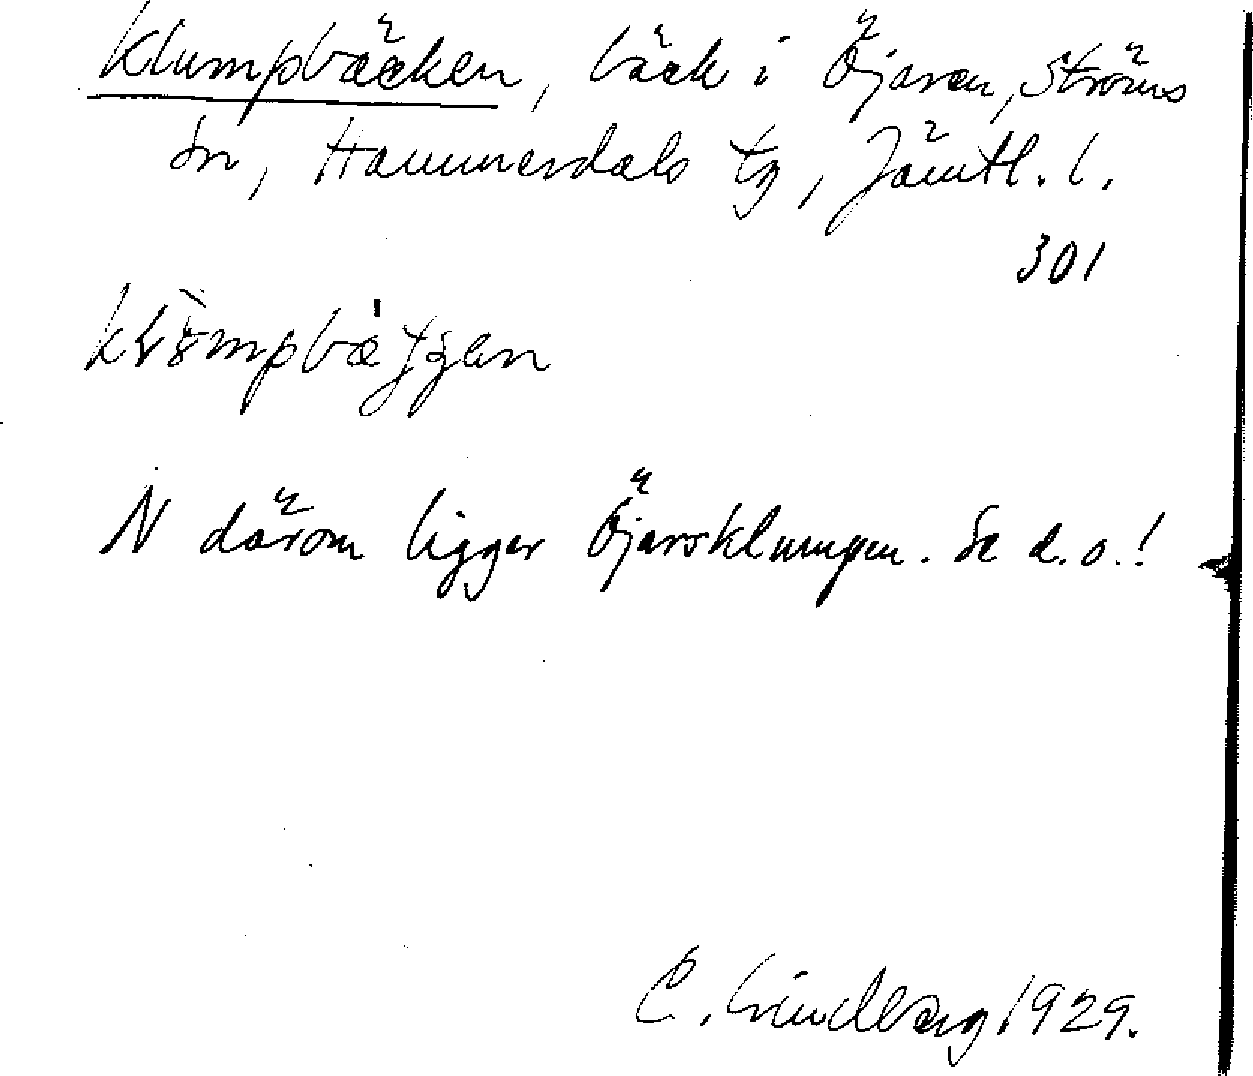 Klumpbäcken, bäck i Öjaren, Ströms
sn, Hammerdals tg, Jämtl. l.
301
N därom ligger Öjarsklumpen. Se d.o.!
C. Lindberg 1929.